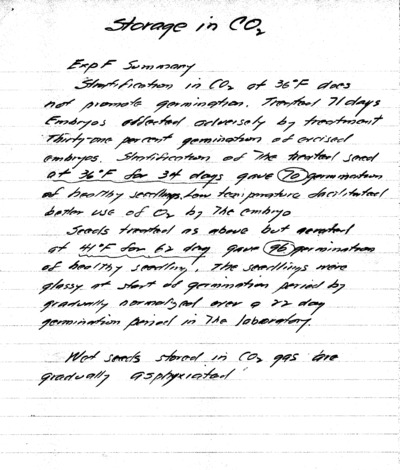 Storage in CO2
Exp F Summary
Stratification in CO2 at 36°F does
not promote germination. Treated 71 days
Embryos affected adversely by treatment
Thirty-one percent germination of excised
embryos. Stratification of The treated seed
at 36°F for 34 days gave 70 germination
of healthy seedlings. Low temperature facilitated
better use of O2 by The embryo
Seeds treated as above but aerated
at 41°F for 62 day gave 96 germination
of healthy seedling. The seedlings were
glassy at start of germination period by
gradually normalized over a 22 day
germination period in The laboratory.
Wet seeds stored in CO2 gas are
gradually asphyxiated